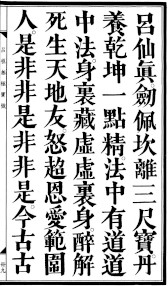 呂仙眞劒佩坎離三尺寶丹
養乾坤一點精法中有道道
中法身裏藏虛虛裏身醉解
死生天地友怒超恩愛範圍
人。是非非是非非是。今古古